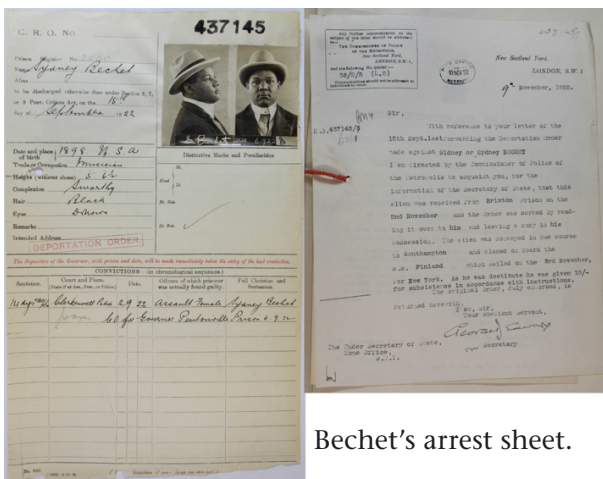 C. R. O. No.
437145
Prison Register No.
Name Sydney Bechet
Alias
to be discharged otherwise than under Section 5, 7,
or 8 Penl. Crimes Act, on the 15.
day of September 1922
Date and place of birth 1898 U S A
Trade or Occupation Musician
Height (without shoes) 5 6½
Complexion Swarthy
Hair Black
Eyes Brown
Remarks
Intended Address
DEPORTATION ORDER
Distinctive Marks and Peculiarities
The Signature of the Governor, with prison and date, will be made immediately below the entry of the last conviction.
CONVICTIONS (in chronological sequence.)
Sentence.
Court and Place.
Date.
Offence of which prisoner was actually found guilty.
Full Christian and Surnames.
14 days Clerkenwell 2 9 22 Assault Female Sydney Bechet
for Governor Pentonville Prison 6. 9. 22
Any further communication on the
subject of this letter should be addressed
to—
THE COMMISSIONER OF POLICE
OF THE METROPOLIS,
New Scotland Yard,
LONDON, S.W. 1,
and the following No. quoted:—
New Scotland Yard,
LONDON, S.W. 1
10 NOV 22
9th November, 1922.
Sir,
With reference to your letter of the
18th Sept. last, regarding the Deportation Order
made against Sidney or Sydney BECHET
I am directed by the Commissioner of Police of
the Metropolis to acquaint you, for the
information of the Secretary of State, that this
alien was received from Brixton Prison on the
2nd November and the Order was served by read-
ing it over to him and leaving a copy in his
possession. The alien was conveyed in due course
to Southampton and placed on board the
s.s. Finland which sailed on the 3rd November,
for New York. As he was destitute he was given 10/-
for subsistence in accordance with instructions.
The original Order, duly endorsed, is
returned herewith.
I am, Sir,
Your obedient Servant,
Secretary
The Under Secretary of State,
Home Office,
S.W.1.
Bechet's arrest sheet.